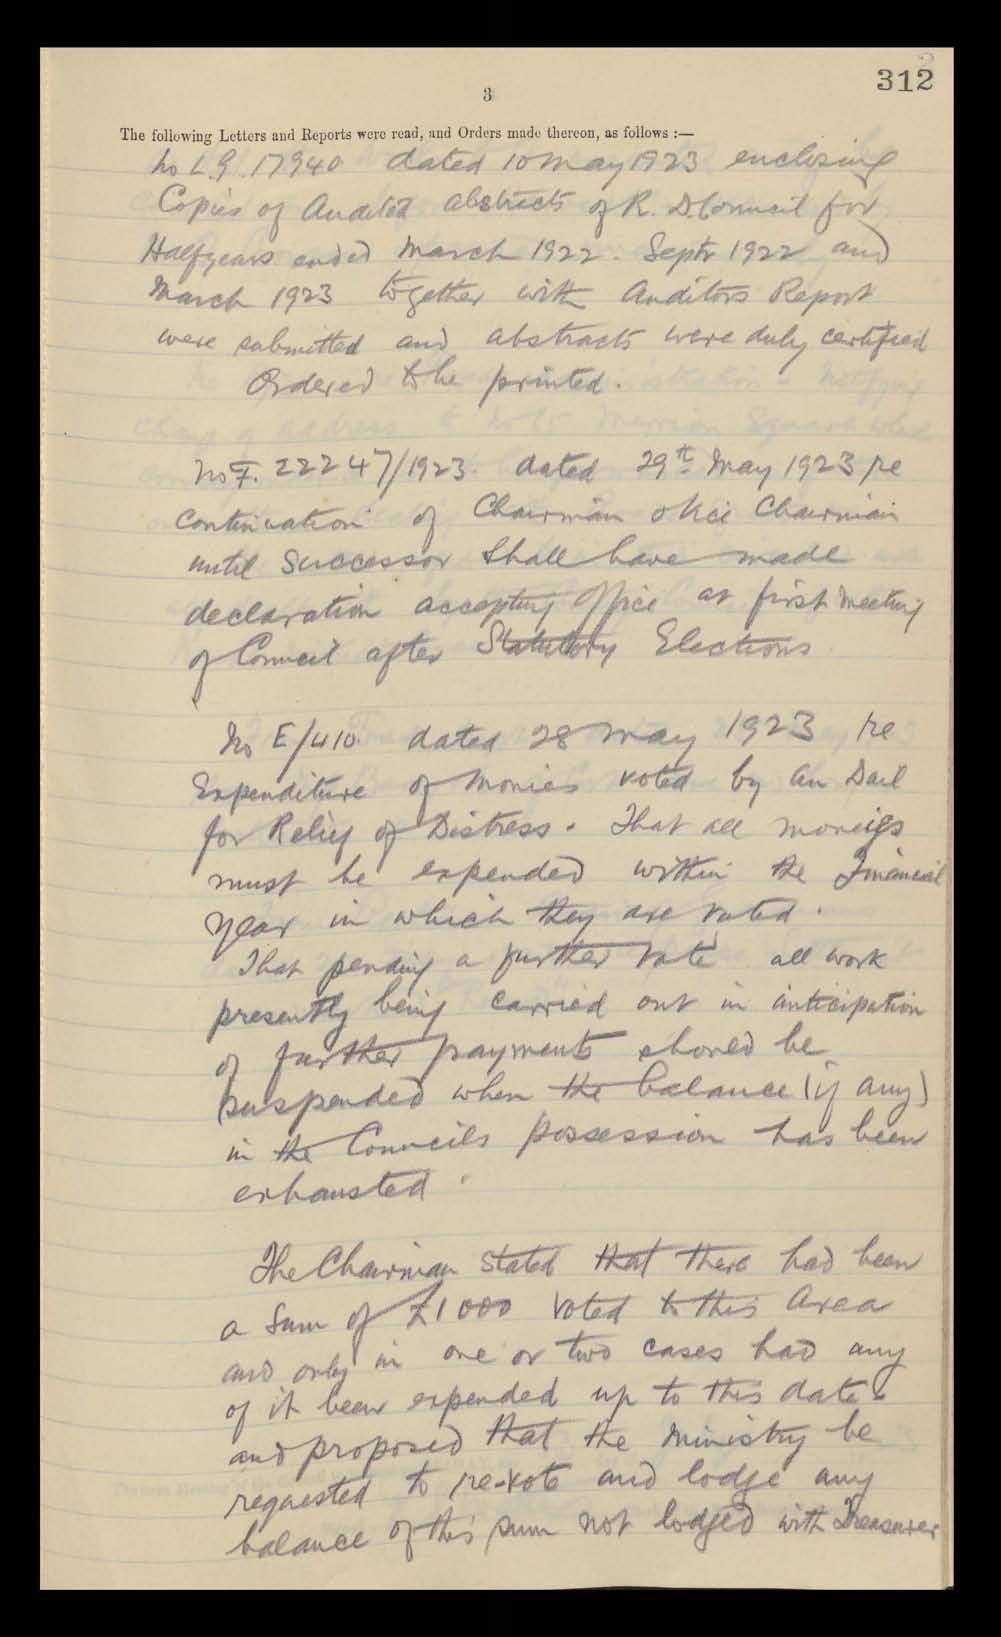 312
3
The following Letters and Reports were read, and Orders made thereon, as follows :—
No L.G. 17940 dated 10 May 1923 enclosing
Copies of Audited abstracts of R. D. Council for
Halfyears ended March 1922. Septr 1922 and
March 1923 together with Auditors Report
were submitted and abstracts were duly certified
Ordered to be printed.
No F. 22247/1923. dated 29th May 1923 re
Continuation of Chairman & Vice Chairman
until Successor shall have made
declaration accepting Office at first Meeting
of Council after Statutory Elections
No E/410. dated 28 May 1923 re
Expenditure of Monies voted by An Dail
for Relief of Distress. That all moneys
must be expended within the Financial
Year in which they are voted.
That pending a further Vote all work
presently being carried out in anticipation
of further payments should be
suspended when the balance (if any)
in the Councils possession has been
exhausted.
The Chairman stated that there had been
a Sum of £1000 voted to this Area
and only in one or two cases had any
of it been expended up to this date
and proposed that the Ministry be
requested to re-vote and lodge any
balance of this sum not lodged with Treasurer